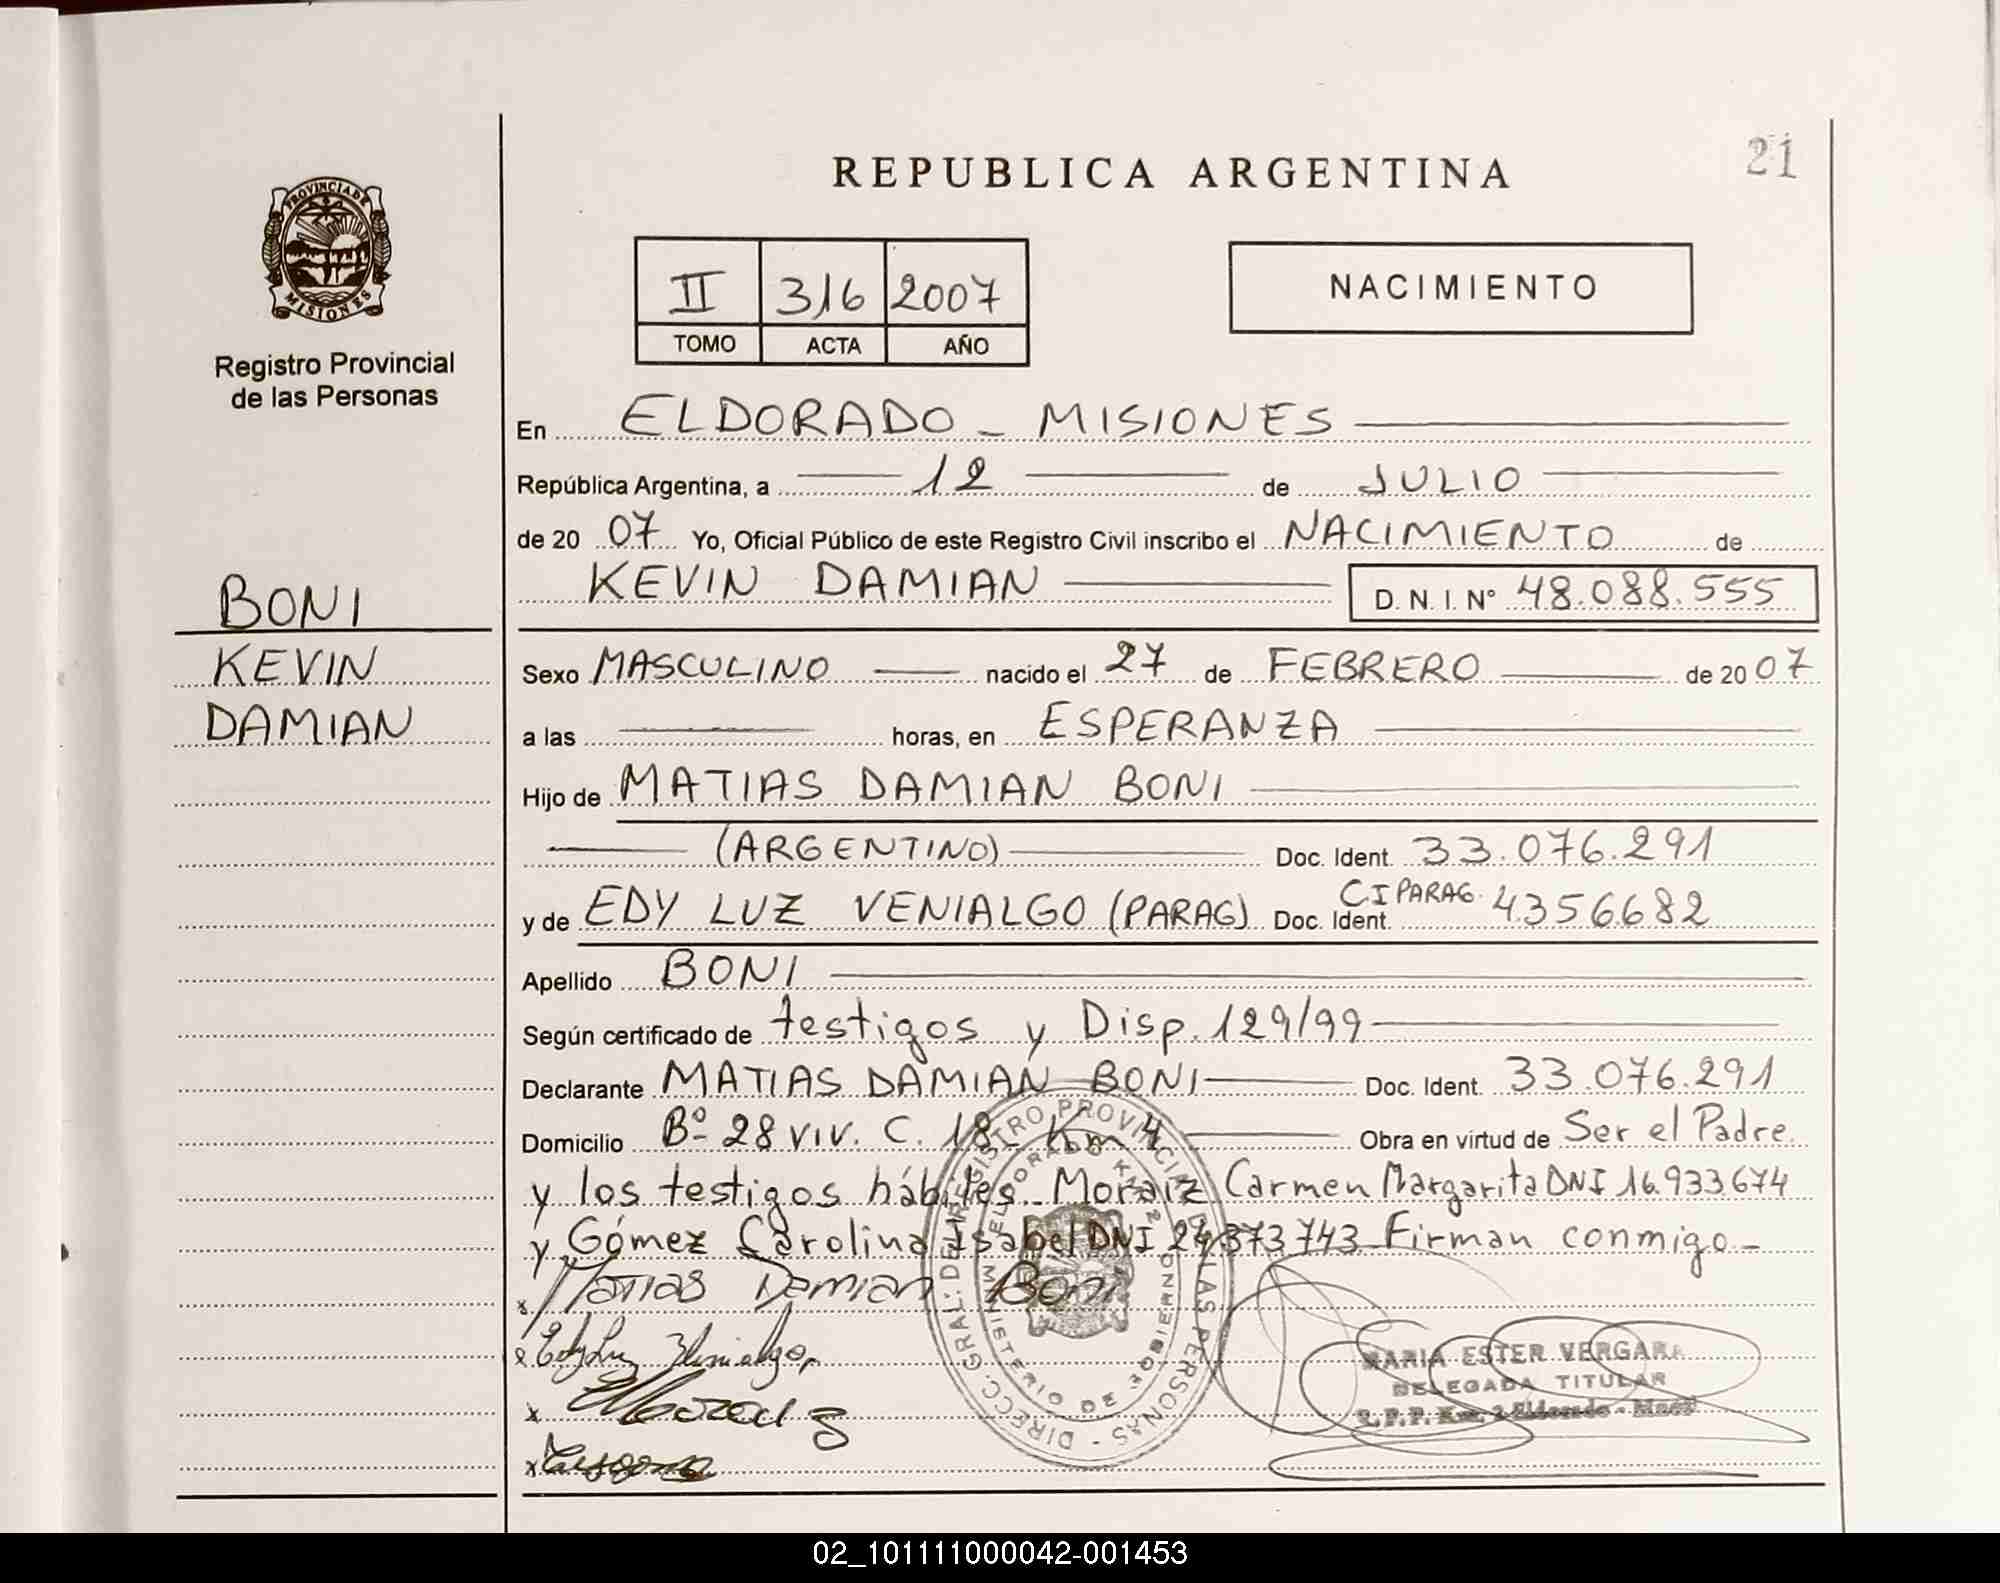 REPUBLICA ARGENTINA
21
PROVINCIA DE
MISIONES
Registro Provincial
de las Personas
II 316 2007
TOMO ACTA AÑO
NACIMIENTO
BONI
KEVIN
DAMIAN
En ELDORADO - MISIONES
República Argentina, a 12 de JULIO
de 2007 Yo, Oficial Público de este Registro Civil inscribo el NACIMIENTO de
KEVIN DAMIAN D. N. I. Nº 48.088.555
Sexo MASCULINO nacido el 27 de FEBRERO de 2007
a las horas, en ESPERANZA
Hijo de MATIAS DAMIAN BONI
(ARGENTINO) Doc. Ident. 33.076.291
y de EDY LUZ VENIALGO (PARAG) Doc. Ident. CI PARAG. 4356682
Apellido BONI
Según certificado de testigos y Disp. 129/99
Declarante MATIAS DAMIAN BONI Doc. Ident. 33.076.291
Domicilio Bº 28 VIV. C. 18 - Km 4 Obra en virtud de Ser el Padre
y los testigos hábiles Moraiz Carmen Margarita DNI 16.933.674
y Gómez Carolina Isabel DNI 24.373.743 Firman conmigo -
x Matias Damian Boni
x Edy Luz Venialgo
x
x
DIRECC. GRAL. DEL REGISTRO PROVINCIAL DE LAS PERSONAS
MINISTERIO DE GOBIERNO
ELDORADO KM 2
MARIA ESTER VERGARA
DELEGADA TITULAR
R.P.P. Km. 2 Eldorado - Mnes
02_101111000042-001453